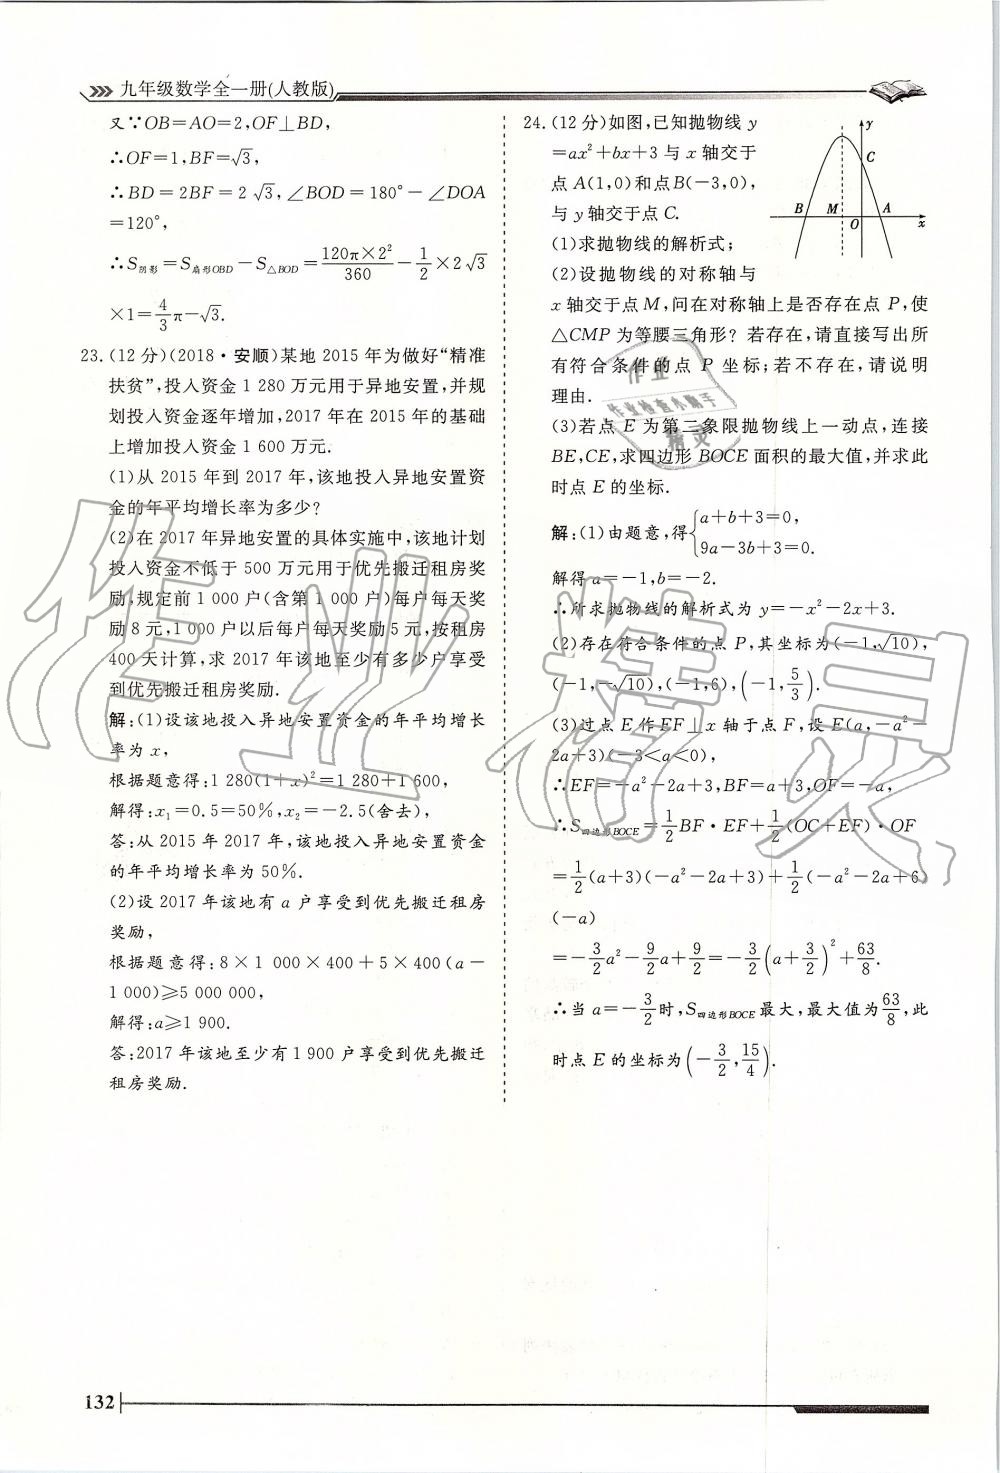 九年级数学全一册(人教版)
又∵OB=AO=2,OF⊥BD,
∴OF=1,BF=√3,
∴BD=2BF=2√3,∠BOD=180°-∠DOA
=120°,
∴S阴影=S扇形OBD-S△BOD=120π×2²/360-1/2×2√3
×1=4/3π-√3.
23.(12分)(2018·安顺)某地2015年为做好“精准
扶贫”,投入资金1 280万元用于异地安置,并规
划投入资金逐年增加,2017年在2015年的基础
上增加投入资金1 600万元.
(1)从2015年到2017年,该地投入异地安置资
金的年平均增长率为多少?
(2)在2017年异地安置的具体实施中,该地计划
投入资金不低于500万元用于优先搬迁租房奖
励,规定前1 000户(含第1 000户)每户每天奖
励8元,1 000户以后每户每天奖励5元,按租房
400天计算,求2017年该地至少有多少户享受
到优先搬迁租房奖励.
解:(1)设该地投入异地安置资金的年平均增长
率为x,
根据题意得:1 280(1+x)²=1 280+1 600,
解得:x₁=0.5=50%,x₂=-2.5(舍去),
答:从2015年2017年,该地投入异地安置资金
的年平均增长率为50%.
(2)设2017年该地有a户享受到优先搬迁租房
奖励,
根据题意得:8×1 000×400+5×400(a-
1 000)≥5 000 000,
解得:a≥1 900.
答:2017年该地至少有1 900户享受到优先搬迁
租房奖励.
24.(12分)如图,已知抛物线y
=ax²+bx+3与x轴交于
点A(1,0)和点B(-3,0),
与y轴交于点C.
(1)求抛物线的解析式;
(2)设抛物线的对称轴与
x轴交于点M,问在对称轴上是否存在点P,使
△CMP为等腰三角形?若存在,请直接写出所
有符合条件的点P坐标;若不存在,请说明
理由.
(3)若点E为第二象限抛物线上一动点,连接
BE,CE,求四边形BOCE面积的最大值,并求此
时点E的坐标.
y
C
B
M
O
A
x
解:(1)由题意,得{a+b+3=0,
9a-3b+3=0.
解得a=-1,b=-2.
∴所求抛物线的解析式为y=-x²-2x+3.
(2)存在符合条件的点P,其坐标为(-1,√10),
(-1,-√10),(-1,6),(-1,5/3).
(3)过点E作EF⊥x轴于点F,设E(a,-a²-
2a+3)(-3<a<0),
∴EF=-a²-2a+3,BF=a+3,OF=-a,
∴S四边形BOCE=1/2BF·EF+1/2(OC+EF)·OF
=1/2(a+3)(-a²-2a+3)+1/2(-a²-2a+6)
(-a)
=-3/2a²-9/2a+9/2=-3/2(a+3/2)²+63/8.
∴当a=-3/2时,S四边形BOCE最大,最大值为63/8,此
时点E的坐标为(-3/2,15/4).
132
作业精灵
作业
作业检查小助手
精灵